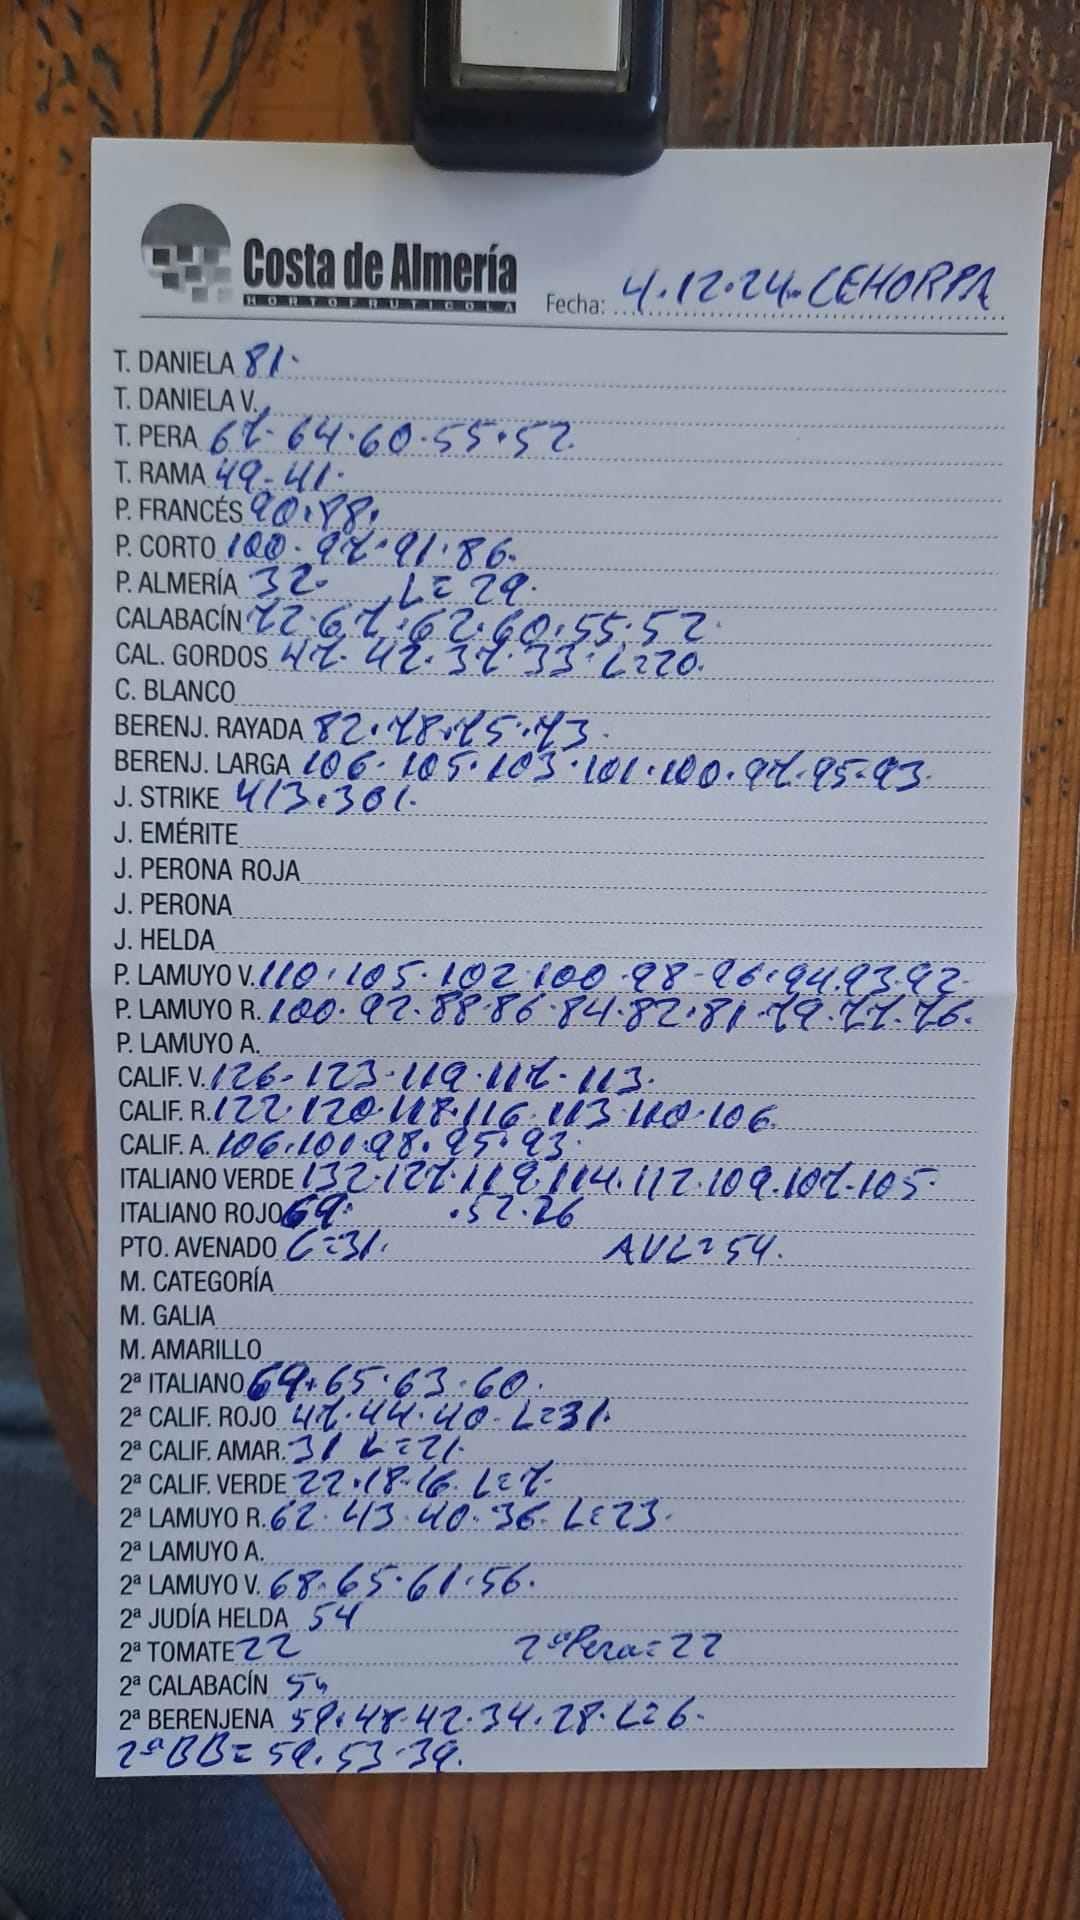 Costa de Almería
HORTOFRUTICOLA
Fecha: 4.12.24. CEHORPA
T. DANIELA 81.
T. DANIELA V.
T. PERA 67. 64.60.55.52
T. RAMA 49-41.
P. FRANCÉS 90.88.
P. CORTO 100. 97.91.86.
P. ALMERÍA 32. L=29.
CALABACÍN 72.67.62.60.55.52.
CAL. GORDOS 47. 42.37.33. L=20.
C. BLANCO
BERENJ. RAYADA 82.78.75.73.
BERENJ. LARGA 106. 105.103.101.100.97.95.93.
J. STRIKE 413.301.
J. EMÉRITE
J. PERONA ROJA
J. PERONA
J. HELDA
P. LAMUYO V. 110.105.102.100.98-96.94.93.92.
P. LAMUYO R. 100.92.88.86.84.82.81.79.77.76.
P. LAMUYO A.
CALIF. V. 126-123.119.117.113.
CALIF. R. 122.120.118.116.113.110.106.
CALIF. A. 106.101.98.95.93.
ITALIANO VERDE 132.127.119.114.112.109.107.105.
ITALIANO ROJO 69. .52.26
PTO. AVENADO C=31. AVL=54.
M. CATEGORÍA
M. GALIA
M. AMARILLO
2ª ITALIANO 69.65.63.60.
2ª CALIF. ROJO 47.44.40. L=31.
2ª CALIF. AMAR. 31 L=21.
2ª CALIF. VERDE 22.18.16. L=7.
2ª LAMUYO R. 62.43.40.36. L=23.
2ª LAMUYO A.
2ª LAMUYO V. 68.65.61.56.
2ª JUDÍA HELDA 54
2ª TOMATE 22 2ªPera=22
2ª CALABACÍN
2ª BERENJENA 59.48.42.34.28. L=6.
2ªBB=59.53.39.